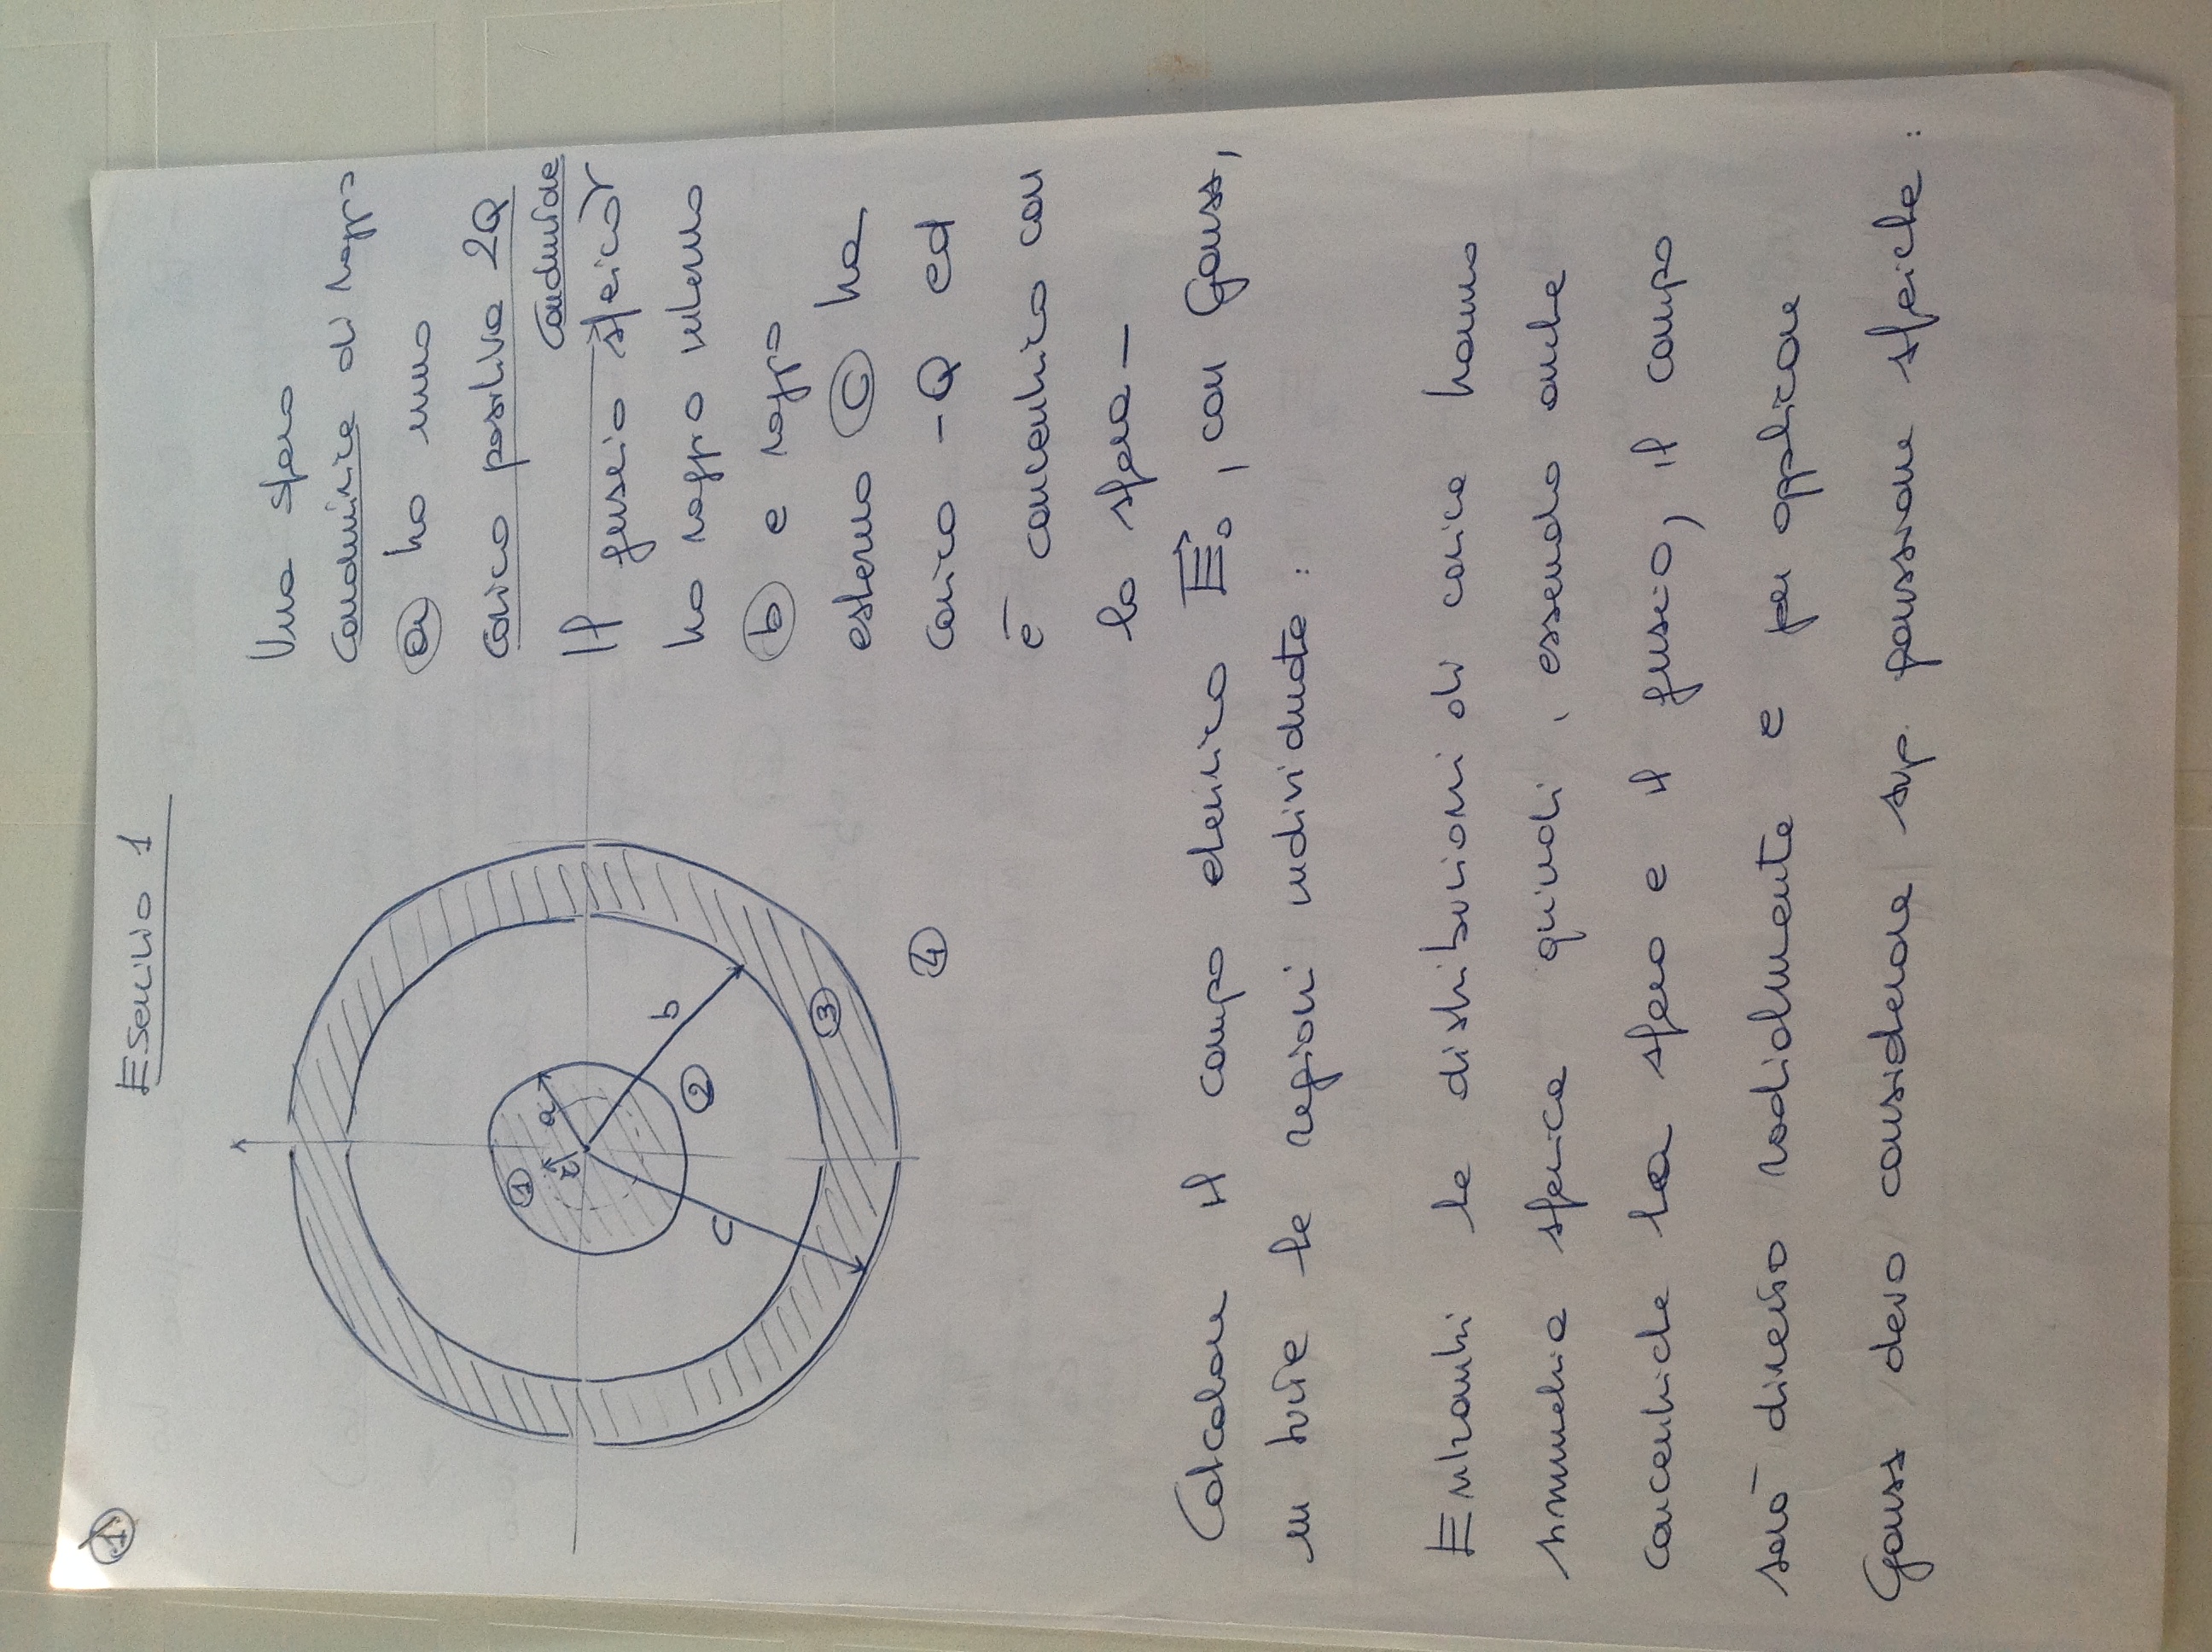 1
Esercizio 1
Una sfera
conduttrice di raggio
a ha una
carica positiva 2Q
conduttore
Il guscio sferico
ha raggio interno
b e raggio
esterno c ha
carica -Q ed
è concentrico con
la sfera -
1
r
a
b
2
c
3
4
Calcolare il campo elettrico E₀, con Gauss,
in tutte le regioni individuate :
Entrambi le distribuzioni di carica hanno
simmetria sferica quindi, essendo anche
concentriche la sfera e il guscio, il campo
sarà diretto radialmente e per applicare
Gauss devo considerare sup. gaussiane sferiche :